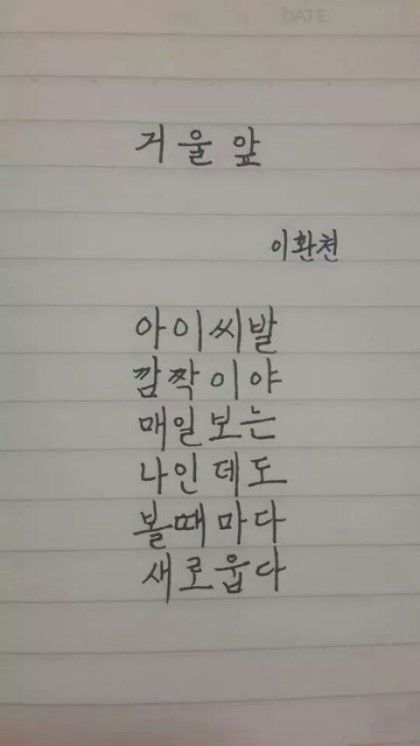 DATE
거울 앞
이환천
아이씨발
깜짝이야
매일보는
나인데도
볼때마다
새로웁다